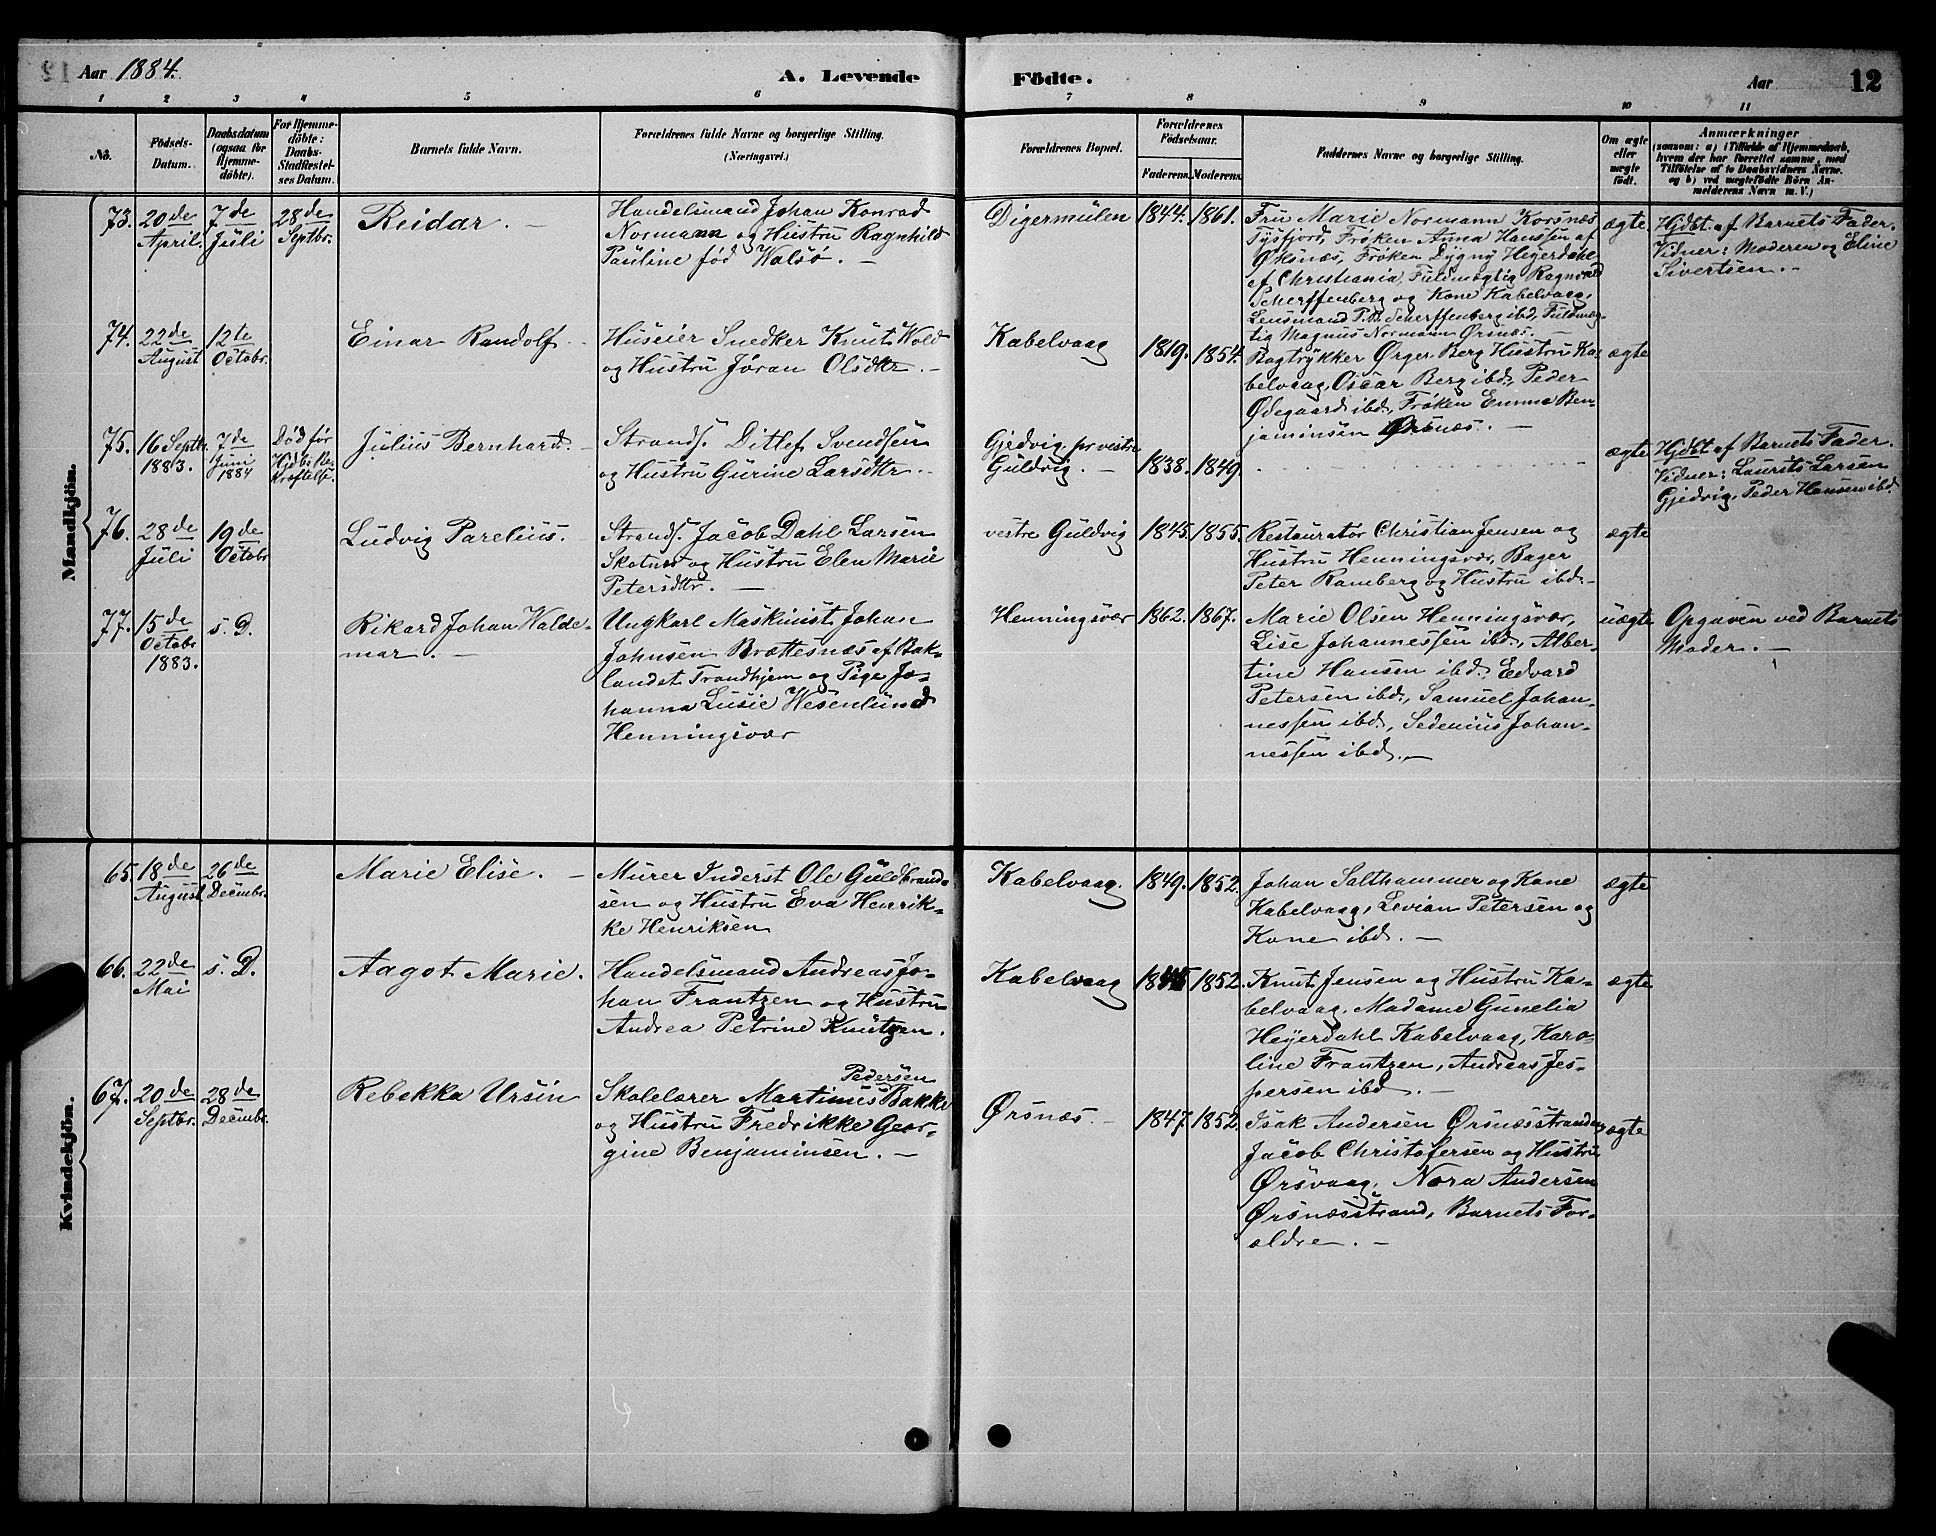 Aar 1884.
A. Levende
Födte.
Aar
12
1 2 3 4 5 6 7 8 9 10 11
No.
Födsels-
Datum.
Daabsdatum
(ogsaa for
Hjemme-
döbte).
For Hjemme-
döbte:
Daabs-
Stadfæstel-
ses Datum.
Barnets fulde Navn.
Forældrenes fulde Navne og borgerlige Stilling.
(Næringsvei.)
Forældrenes Bopæl.
Forældrenes
Födselsaar.
Faderens.
Moderens.
Faddernes Navne og borgerlige Stilling.
Om ægte
eller
uægte
födt.
Anmærkninger
(saasom: a) i Tilfælde af Hjemmedaab,
hvem der har forrettet samme, med
Tilföielse af to Daabsvidners Navne.
og b) ved uægtefödte Börn An-
melderens Navn m. V.)
Mandkjön.
73.
20de
April.
7de
Juli
28de
Septbr.
Reidar. —
Handelsmand Johan Konrad
Normann og Hustru Ragnhild
Pauline fød Walsø. —
Digermulen
1844.
1861.
Fru Marie Normann Korsnæs
Tysfjord, Frøken Anna Hanssen af
Øksnæs, Frøken Dygny Heyerdahl
af Christiania, Fuldmægtig Ragnvald
Scherffenberg og Kone Kabelvaag,
Lensmand P.B. Scherffenberg ibd., Fuldmæg-
tig Magnus Normann Ørsnæs. —
ægte
Hjdbt. af Barnets Fader.
Vidner: Moderen og Eline
Sivertsen. —
74.
22de
August
12te
Octobr.
Einar Randolf. —
Huseier Snedker Knut Wold
og Hustru Jøran Olsdtr. —
Kabelvaag
1819.
1854.
Bogtrykker Ørger Berg Hustru Ka-
belvaag, Oscar Berg ibd., Peder
Ødegaard ibd., Frøken Emma Ben-
jaminsen Ørsnæs. —
ægte
75.
16 Septbr.
1883.
7de
Juni
1884
Død før
Julius Bernhard. —
Strands. Ditlef Svendsen
og Hustru Gurine Larsdtr. —
Gjedvig pr vestre
Guldvig. —
1838.
1849.
ægte
Hjdbt af Barnets Fader.
Vidner: Laurits Larsen
Gjedvig, Peder Hansen ibd.
76.
28de
Juli
19de
Octobr
Ludvig Parelius. —
Strands. Jacob Dahl Larsen
Skotnes og Hustru Elen Marie
Petersdtr. —
vestre Guldvig
1845.
1855.
Restauratør Christian Jensen og
Hustru Henningsvær, Bager
Peter Ramberg og Hustru ibd. —
ægte
77.
15de
Octobr
1883.
s. D.
Rikard Johan Walde-
mar. —
Ungkarl Maskinist Johan
Johnsen Brættesnæs af Bak-
landet Trondhjem og Pige Jo-
hanna Lusie Wesenlund
Henningsvær
Henningsvær
1862.
1867.
Marie Olsen Henningsvær,
Lise Johannessen ibd., Alber-
tine Hansen ibd., Edvard
Petersen ibd., Samuel Johan-
nessen ibd., Sedenius Johan-
nessen ibd. —
uægte
Opgaven ved Barnets
Moder. —
Kvindekjön.
65.
18de
August
26de
Decembr.
Marie Elise. —
Murer Inderst Ole Guldbrand-
sen og Hustru Eva Henrik-
ke Henriksen
Kabelvaag.
1849.
1852.
Johan Salthammer og Kone
Kabelvaag, Levian Petersen og
Kone ibd. —
ægte
66.
22de
Mai
s. D.
Aagot Marie.
Handelsmand Andreas Jo-
han Frantzen og Hustru
Andrea Petrine Knutzen.
Kabelvaag
1852.
Knut Jensen og Hustru Ka-
belvaag, Madame Gunelia
Heyerdahl Kabelvaag, Karo-
line Frantzen, Andreas Jes-
persen ibd. —
ægte
67.
20de
Septbr.
28de
Decembr.
Rebekka Ursin
Pedersen
Skolelærer Martinus Bakke
og Hustru Fredrikke Geor-
gine Benjaminsen. —
Ørsnæs. —
1847.
1852.
Isak Andersen Ørsnæsstranden,
Jacob Christofersen og Hustru
Ørsvaag, Nora Andersen
Ørsnæsstrand, Barnets For-
ældre. —
ægte